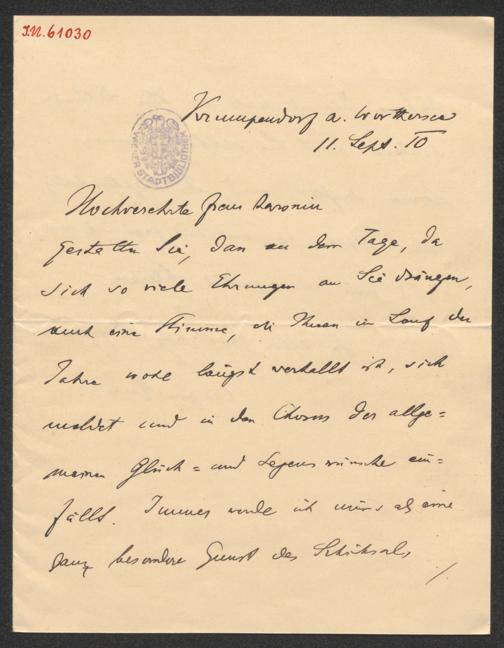 I.N. 61030
Krumpendorf a. Wörthersee
11. Sept. 10
WIENER STADTBIBLIOTHEK
Hochverehrte Frau Baronin
Gestatten Sie, dan an dem Tage, da
sich so viele Ehrungen an Sie drängen,
auch eine Stimme, die Ihnen im Lauf der
Jahre wohl längst verhallt ist, sich
meldet und in den Chorus der allge=
meinen Glück= und Segenswünsche ein=
fällt. Immer werde ich mir's als eine
ganz besondere Gunst des Schicksals